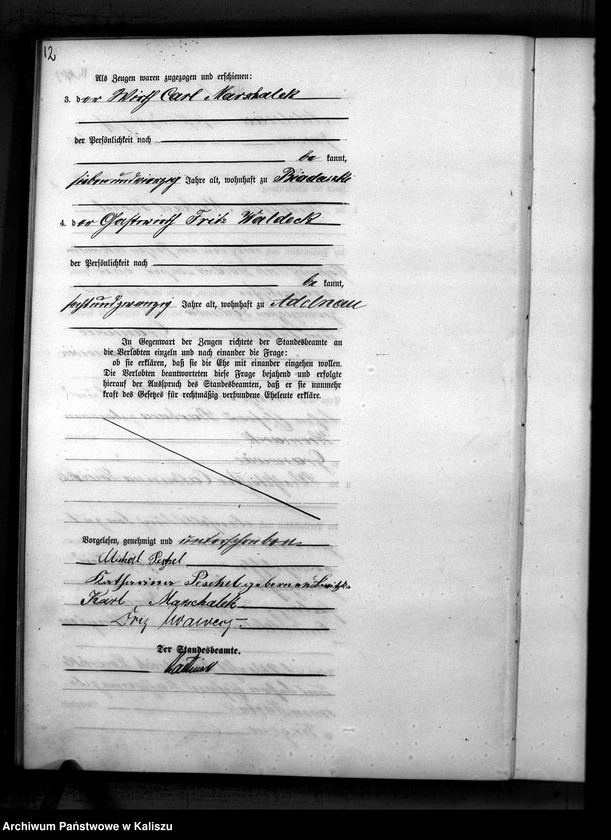 12
Als Zeugen waren zugezogen und erschienen:
3. der Wirth Carl Marschalek
der Persönlichkeit nach
be kannt,
siebenundvierzig Jahre alt, wohnhaft zu Biadaschke
4. der Gastwirth Fritz Waldeck
der Persönlichkeit nach
be kannt,
sechsundzwanzig Jahre alt, wohnhaft zu Adelnau
In Gegenwart der Zeugen richtete der Standesbeamte an
die Verlobten einzeln und nach einander die Frage:
ob sie erklären, daß sie die Ehe mit einander eingehen wollen.
Die Verlobten beantworteten diese Frage bejahend und erfolgte
hierauf der Ausspruch des Standesbeamten, daß er sie nunmehr
kraft des Gesetzes für rechtmäßig verbundene Eheleute erkläre.
Vorgelesen, genehmigt und unterschrieben
Michael Peschel
Katharina Peschel geborene
Karl Marschalek
Fritz
Der Standesbeamte.
Archiwum Państwowe w Kaliszu